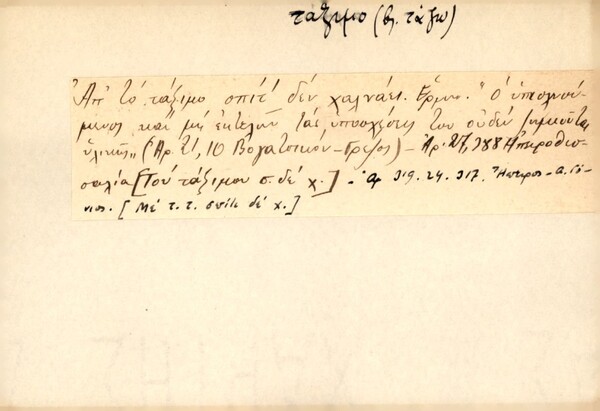 τάξιμο (βλ. τάζω)
Ἀπ' τὸ τάξιμο σπίτ' δὲν χαλνάει. Ἑρμ. "Ὁ ὑποσχνού-
μενος καὶ μὴ ἐκτελῶν τὰς ὑποσχέσεις του οὐδὲν ζημιοῦται
ὑλικῶς" (Ἀρ. 21, 10 Βογατσικόν-Γρέβος) - Ἀρ. 27, 988 Ἠπειροθεσ-
σαλία [Τοῦ τάξιμου σ. δέ χ.] - Ἀρ 319. 24. 317. Ἤπειρος - Α. Γό-
νιος. [Μέ τ. τ. σπίτι δέ χ.]